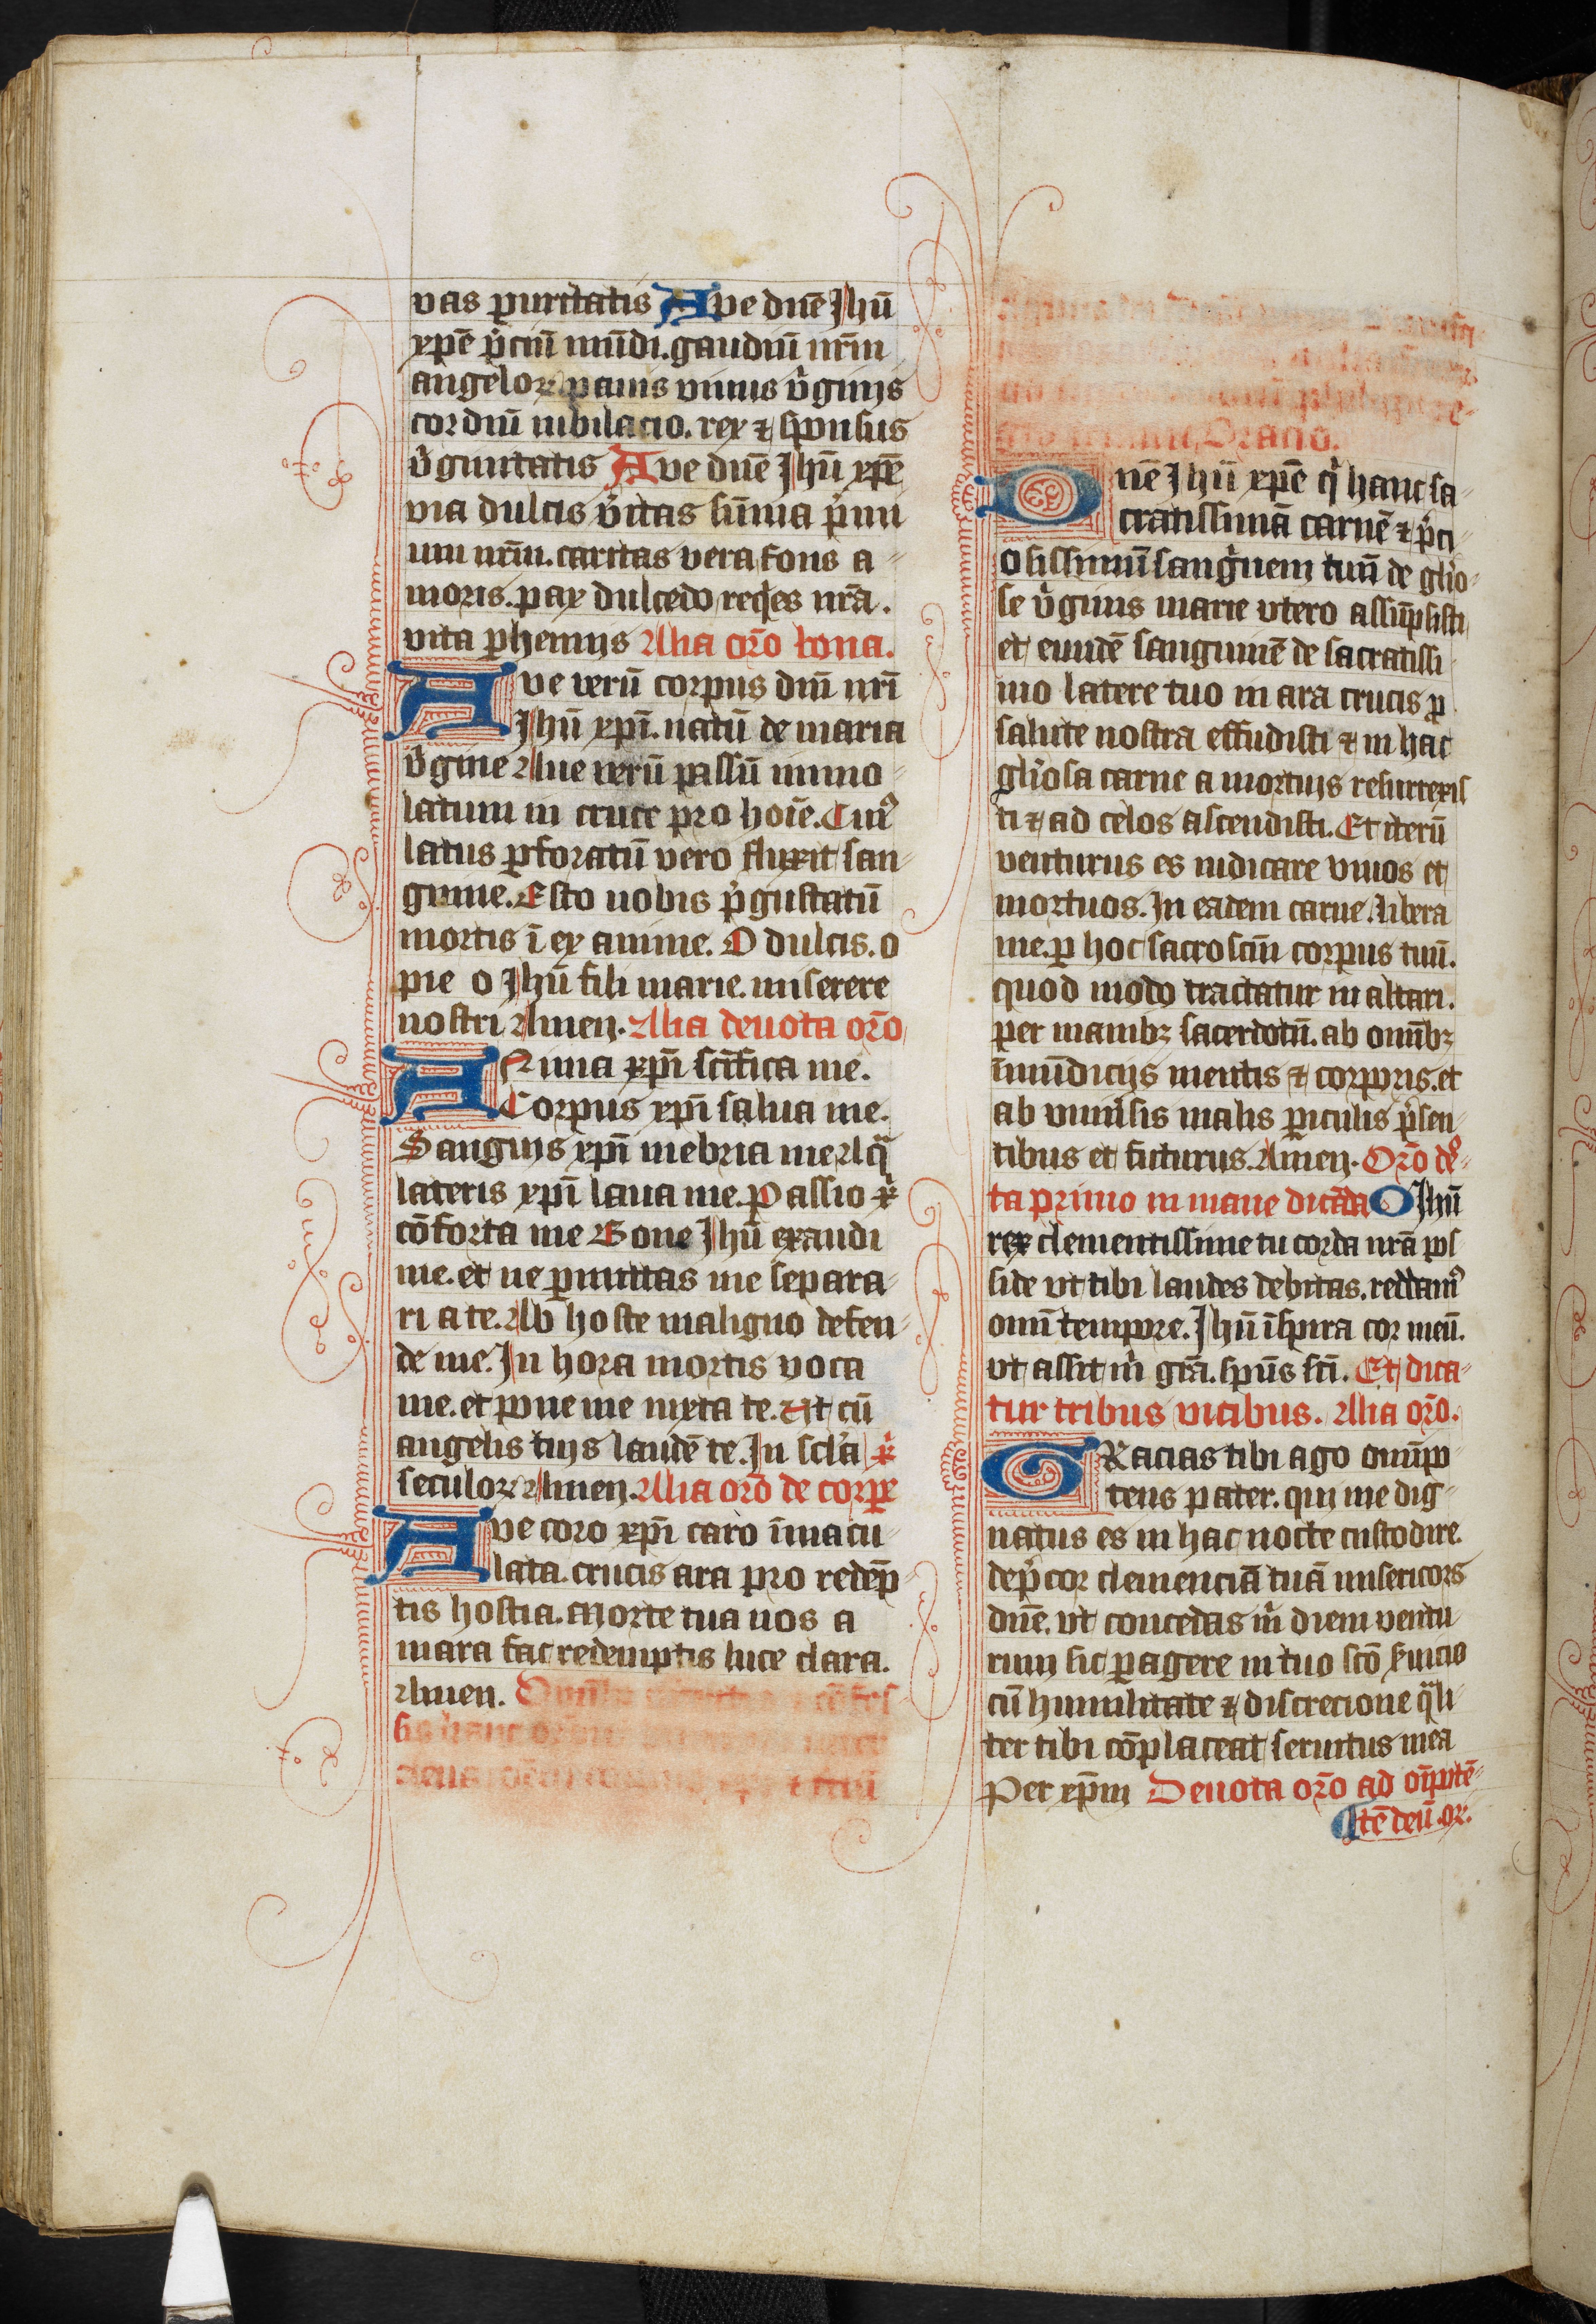 vas puritatis Ave dnē Jhū
xpē p̄ciū mūdi. gaudiū nr̄m
angeloꝝ panis viuus v̓ginis
cordiū iubilacio. rex ⁊ sponsus
v̓ginitatis Ave dnē Jhū xpē
via dulcis v̓itas sūma p̓mi
um nr̄m. caritas vera fons a-
moris. pax dulcedo req̓es nr̄a.
vita phennis Alia or̄o bona.
Ave verū corpus dnī nr̄i
Jhū xpī. natū de maria
v̓gine Aue verū passū immo-
latum in cruce pro hoīe. Cuiꝰ
latus ꝑforatū vero fluxit san-
guine. Esto nobis p̓gustatū
mortis ī examine. O dulcis. o
pie o Jhū fili marie. miserere
nostri Amen. Alia deuota or̄o
Anima xpī sc̄ifica me.
Corpus xpī salua me.
Sanguis xpī inebria me Aq̄
lateris xpī laua me. Passio xp̄i
cōforta me Bone Jhū exaudi
me. et ne ꝑmittas me separa-
ri a te. Ab hoste maligno defen-
de me. In hora mortis voca
me. et pone me iuxta te. Ut cū
angelis tuis laudē te. In scl̄a
seculoꝝ Amen. Alia or̄o de corpe
Ave caro xpī caro īmacu-
lata. crucis ara pro redēp-
tis hostia. Morte tua nos a
mara fac redemptis luce clara.
Amen.
sis hanc
Oracio.
Dnē Jhū xpē q̓ hanc sa-
cratissimā carnē ⁊ p̓ci-
osissimū sang̓nem tuū de glīo-
se v̓ginis marie vtero assūpsisti
et eundē sanguinē de sacratissi
mo latere tuo in ara crucis ꝓ
salute nostra effudisti ⁊ in hac
glīosa carne a mortuis resurrexis
ti ⁊ ad celos ascendisti. Et iterū
venturus es iudicare viuos et
mortuos. In eadem carne. libera
me. ꝑ hoc sacroscm̄ corpus tuū.
quod modo tractatur in altari.
per manibꝫ sacerdotū. ab omībꝫ
īmūdicijs mentis ⁊ corporis. et
ab vniūsis malis ꝑiculis p̓sen
tibus et futurus. Amen. Or̄o de-
ta primo in mane dicēda O Jhū
rex clementissime tu corda nr̄a pos
side vt tibi laudes debitas. reddamꝰ
omī tempore. Jhū īspira cor meū.
vt assit m̓ gr̄a. spūs sc̄i. Et dica-
tur tribus vicibus. Alia or̄o.
GRacias tibi ago omīpo
tens pater. qui me dig-
natus es in hac nocte custodire.
dep̓cor clemenciā tuā misericors
dnē. vt concedas m̓ diem ventu
rum sic ꝑagere in tuo sc̄o s̓uicio
cū humilitate ⁊ discrecione q̄li-
ter tibi cōplaceat seruitus mea
Per xp̄m Deuota or̄o ad oīpotē-
tē deū. or.